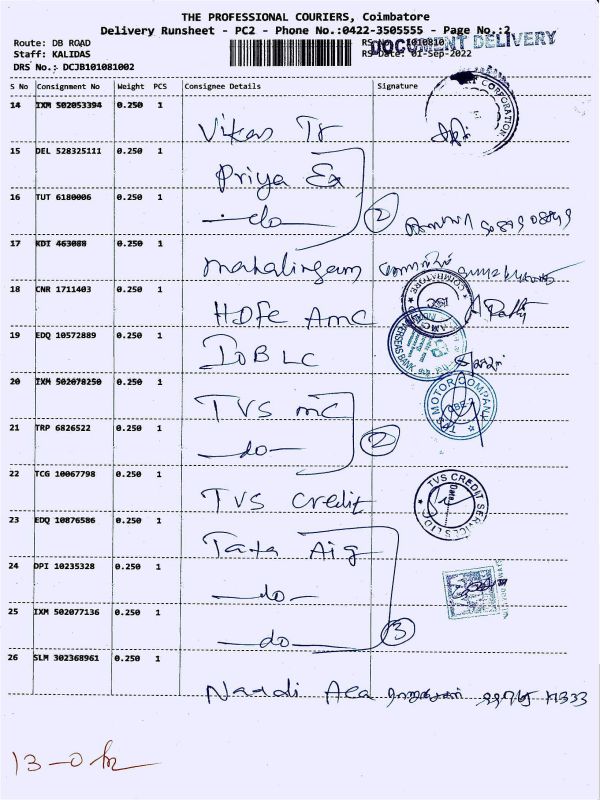 THE PROFESSIONAL COURIERS, Coimbatore
Delivery Runsheet - PC2 - Phone No.:0422-3505555 - Page No.:2
Route: DB ROAD
Staff: KALIDAS
DRS No.: DCJB101081002
RS No.: 1010810
RS Date: 01-Sep-2022
DOCUMENT DELIVERY
S No Consignment No Weight PCS Consignee Details Signature
14 IXM 502053394 0.250 1 Vikas Tr
CORPORATION
15 DEL 528325111 0.250 1 Priya Ex
16 TUT 6180006 0.250 1 -do- 2
17 KDI 463088 0.250 1 mahalingam
18 CNR 1711403 0.250 1 HDFC Amc
COIMBATORE
19 EDQ 10572889 0.250 1 IOB LC
OVERSEAS BANK
20 IXM 502078250 0.250 1 TVS mc
TVS MOTOR COMPANY
CBE-2
21 TRP 6826522 0.250 1 -do- 2
22 TCG 10067798 0.250 1 TVS Credit
TVS CREDIT SERVICES LTD
23 EDQ 10876586 0.250 1 Tata Aig
24 DPI 10235328 0.250 1 -do-
25 IXM 502077136 0.250 1 -do- 3
26 SLM 302368961 0.250 1
13-0